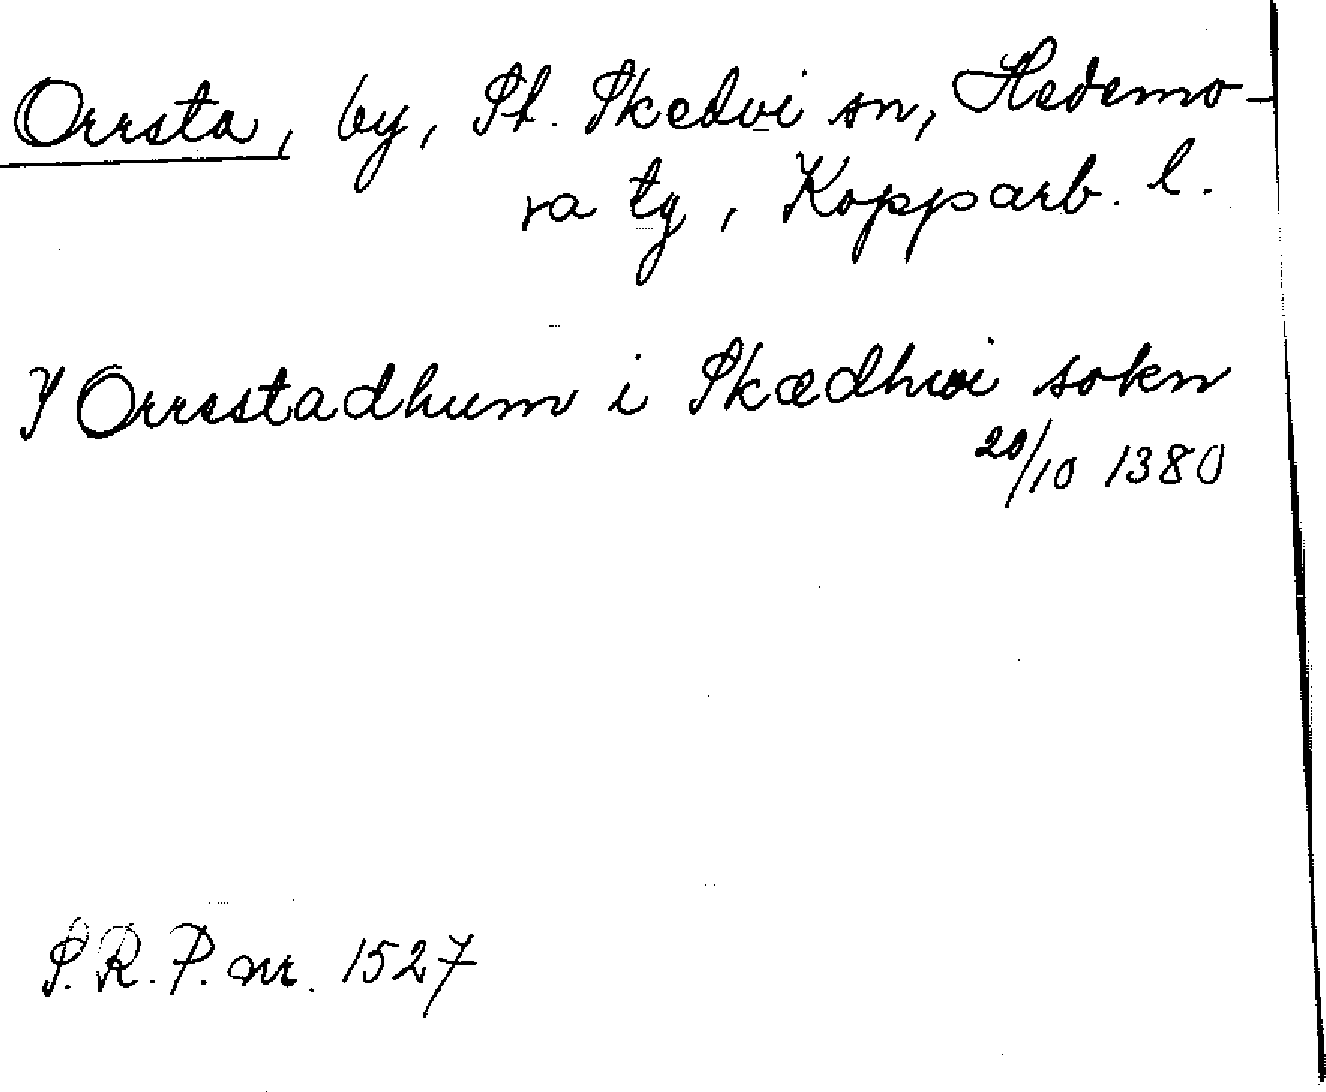 Orrsta, by, St. Skedvi sn, Hedemo-
ra tg, Kopparb. l.
J Orrestadhum i Skædhwi sokn
20/10 1380
S.R.P. nr. 1527